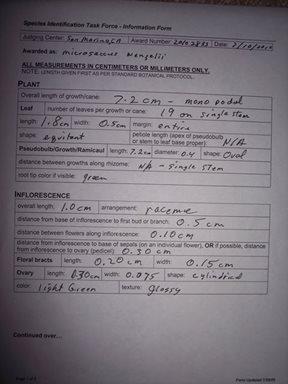 Species Identification Task Force - Information Form
Judging Center: San Marino, CA Award Number: 20102833 Date: 2/10/2010
Awarded as: microsaccus wenzelii
ALL MEASUREMENTS IN CENTIMETERS OR MILLIMETERS ONLY.
NOTE: LENGTH GIVEN FIRST AS PER STANDARD BOTANICAL PROTOCOL.
PLANT
Overall length of growth/cane: 7.2 cm - monopodial
Leaf number of leaves per growth or cane: 19 on single stem
length: 1.8cm width: 0.5cm margin: entire
shape: equitant petiole length (apex of pseudobulb or stem to leaf base proper): N/A
Pseudobulb/Growth/Ramicaul length: 7.2cm diameter: 0.4 shape: Oval
distance between growths along rhizome: N/A - single stem
root tip color if visible: green
INFLORESCENCE
overall length: 1.0cm arrangement: raceme
distance from base of inflorescence to first bud or branch: 0.5cm
distance between flowers along inflorescence: 0.10cm
distance from inflorescence to base of sepals (on an individual flower), OR if possible, distance
from inflorescence to ovary (pedicel): 0.30cm
Floral bracts length: 0.20cm width: 0.15cm
Ovary length: 0.30cm width: 0.075 shape: cylindrical
color: light Green texture: glossy
Continued over...
Page 1 of 2